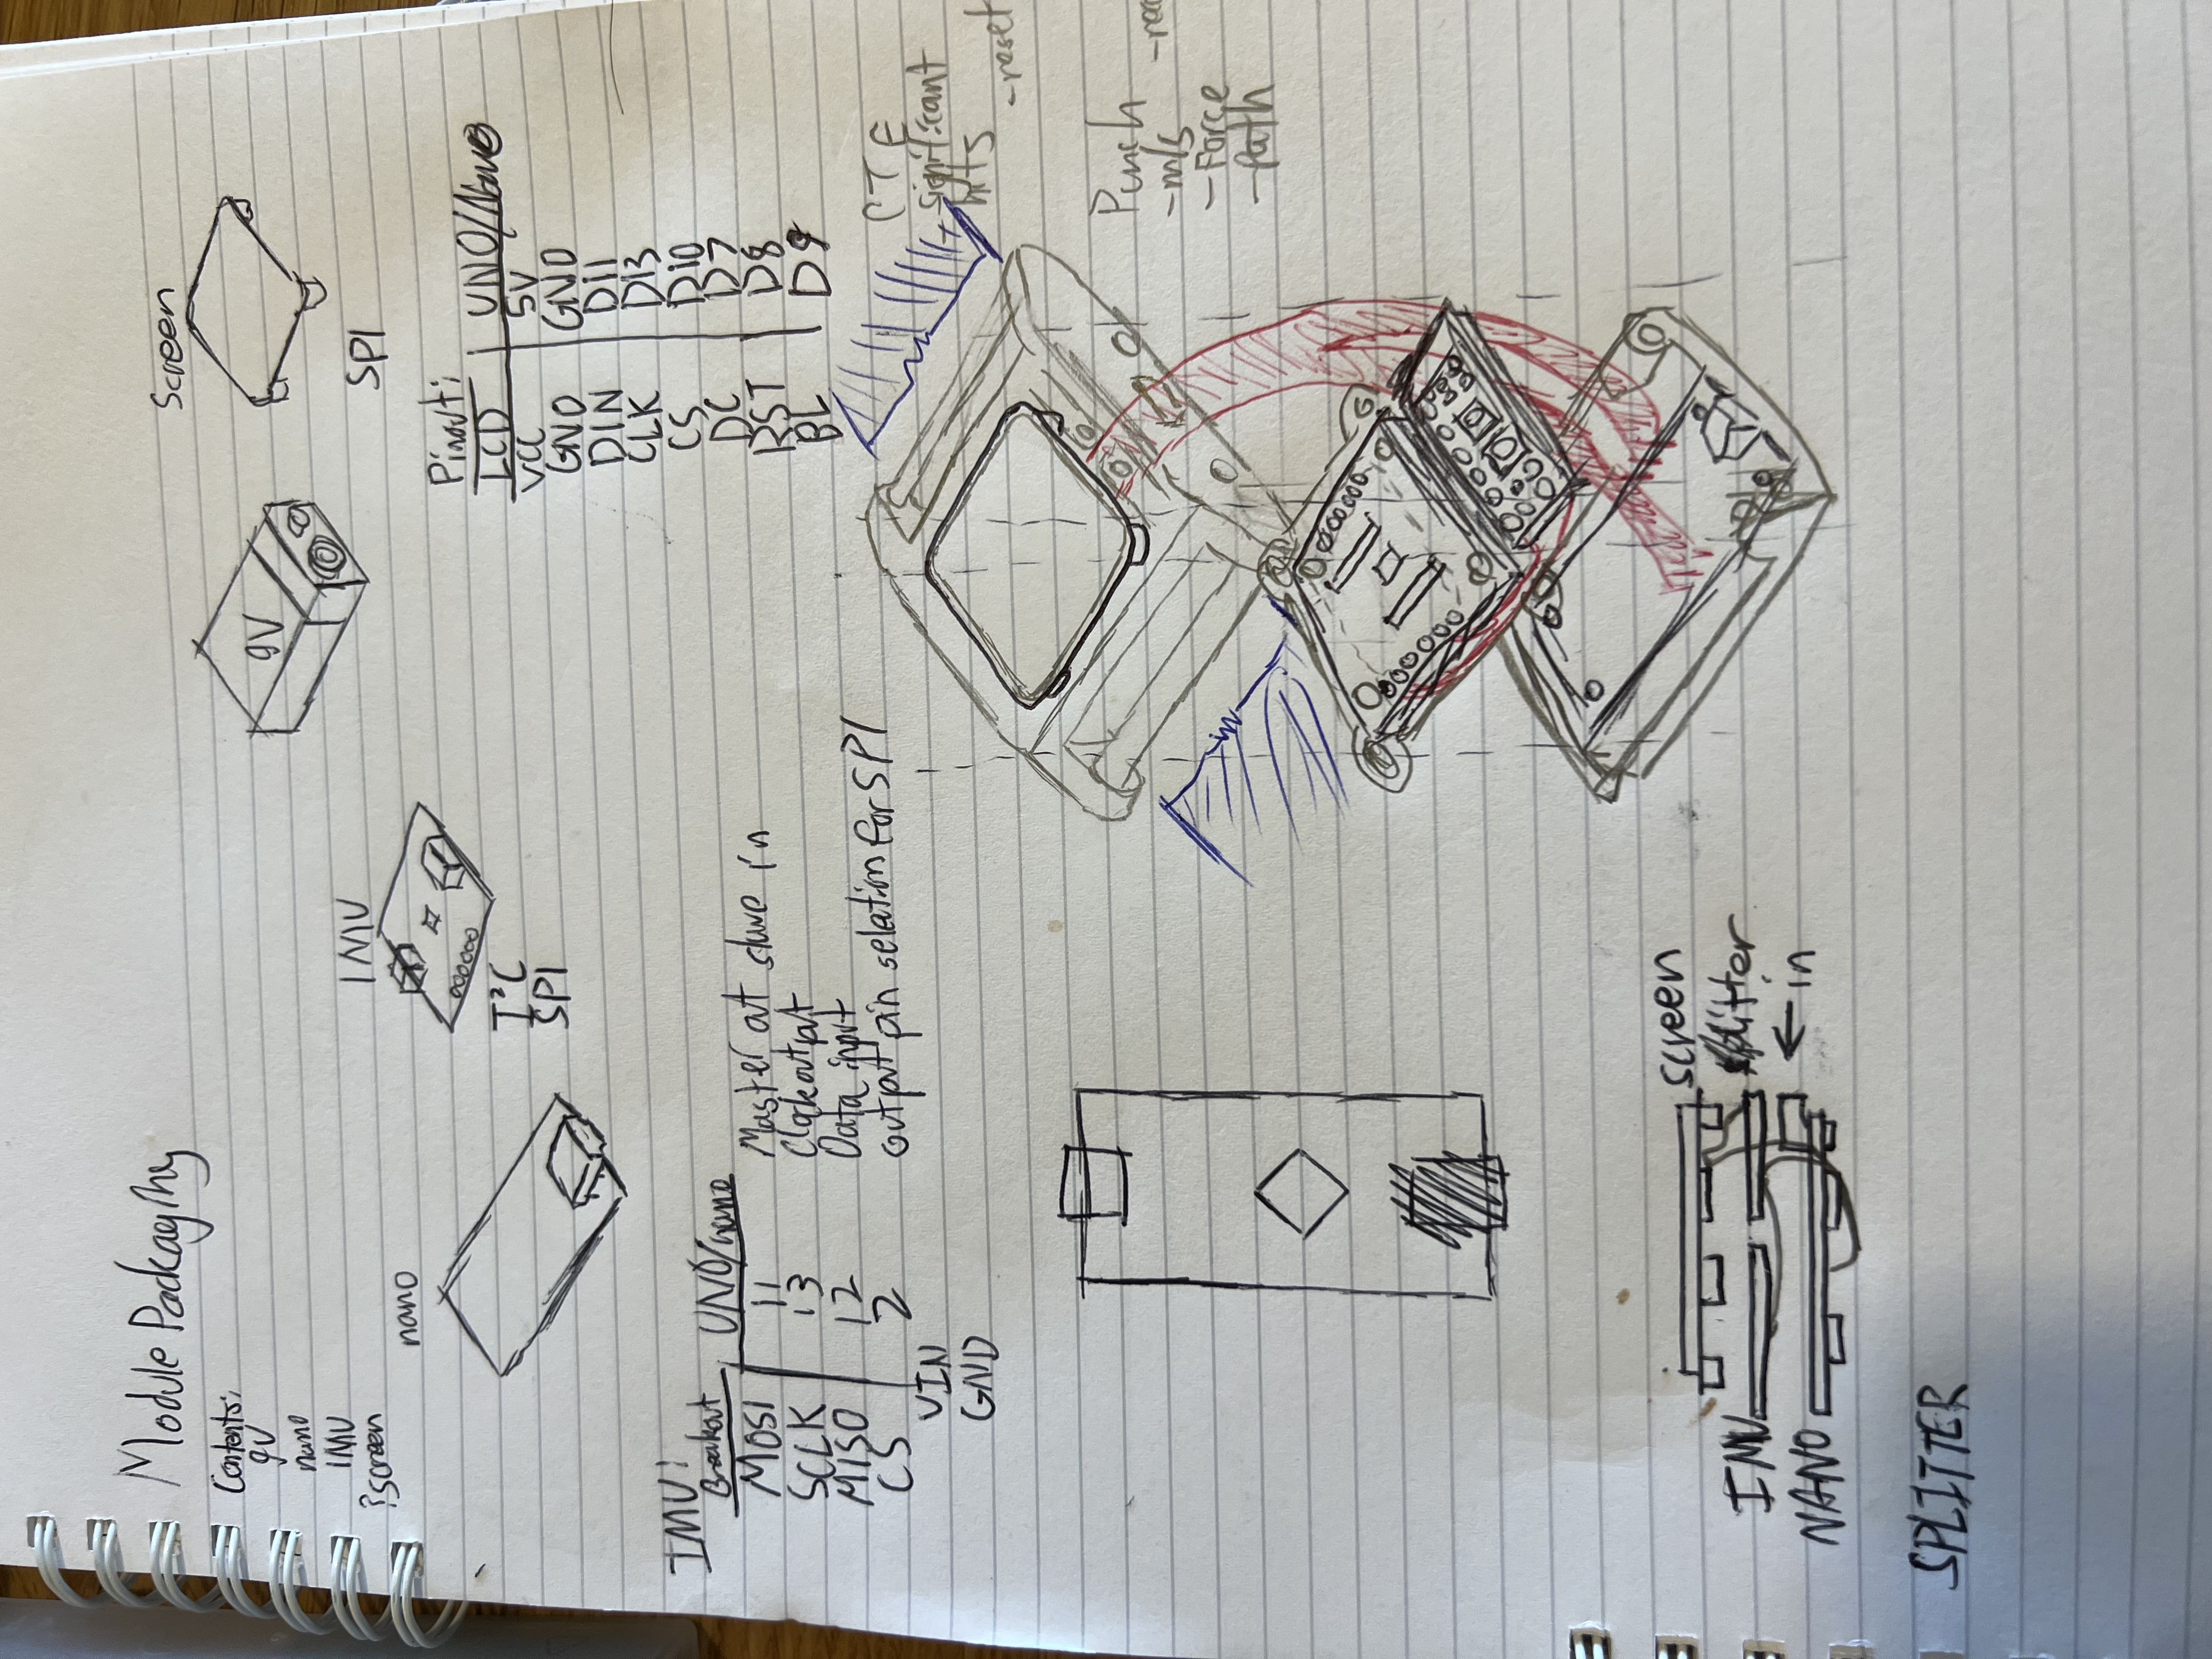 Module Packaging
Contents:
9V
nano
IMU
?screen
nano
IMU
I²C
SPI
9V
Screen
SPI
Pinout:
LCD UNO/Nano
VCC 5V
GND GND
DIN D11
CLK D13
CS D10
DC D7
RST D8
BL D9
IMU:
Breakout UNO/nano
MOSI 11 Master out slave in
SCLK 13 Clock output
MISO 12 Data input
CS 2 output pin selation for SPI
VIN
GND
CTE
- significant
hits
- reset
Punch
- m/s
- Force
- path
screen
IMU splitter
← in
NANO
SPLITTER